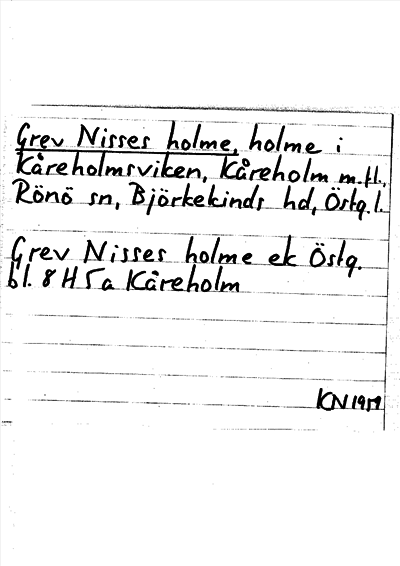 Grev Nisses holme, holme i
Kåreholmsviken, Kåreholm m.fl.,
Rönö sn, Björkekinds hd, Östg. l.
Grev Nisses holme ek Östg.
bl. 8 H 5 a Kåreholm